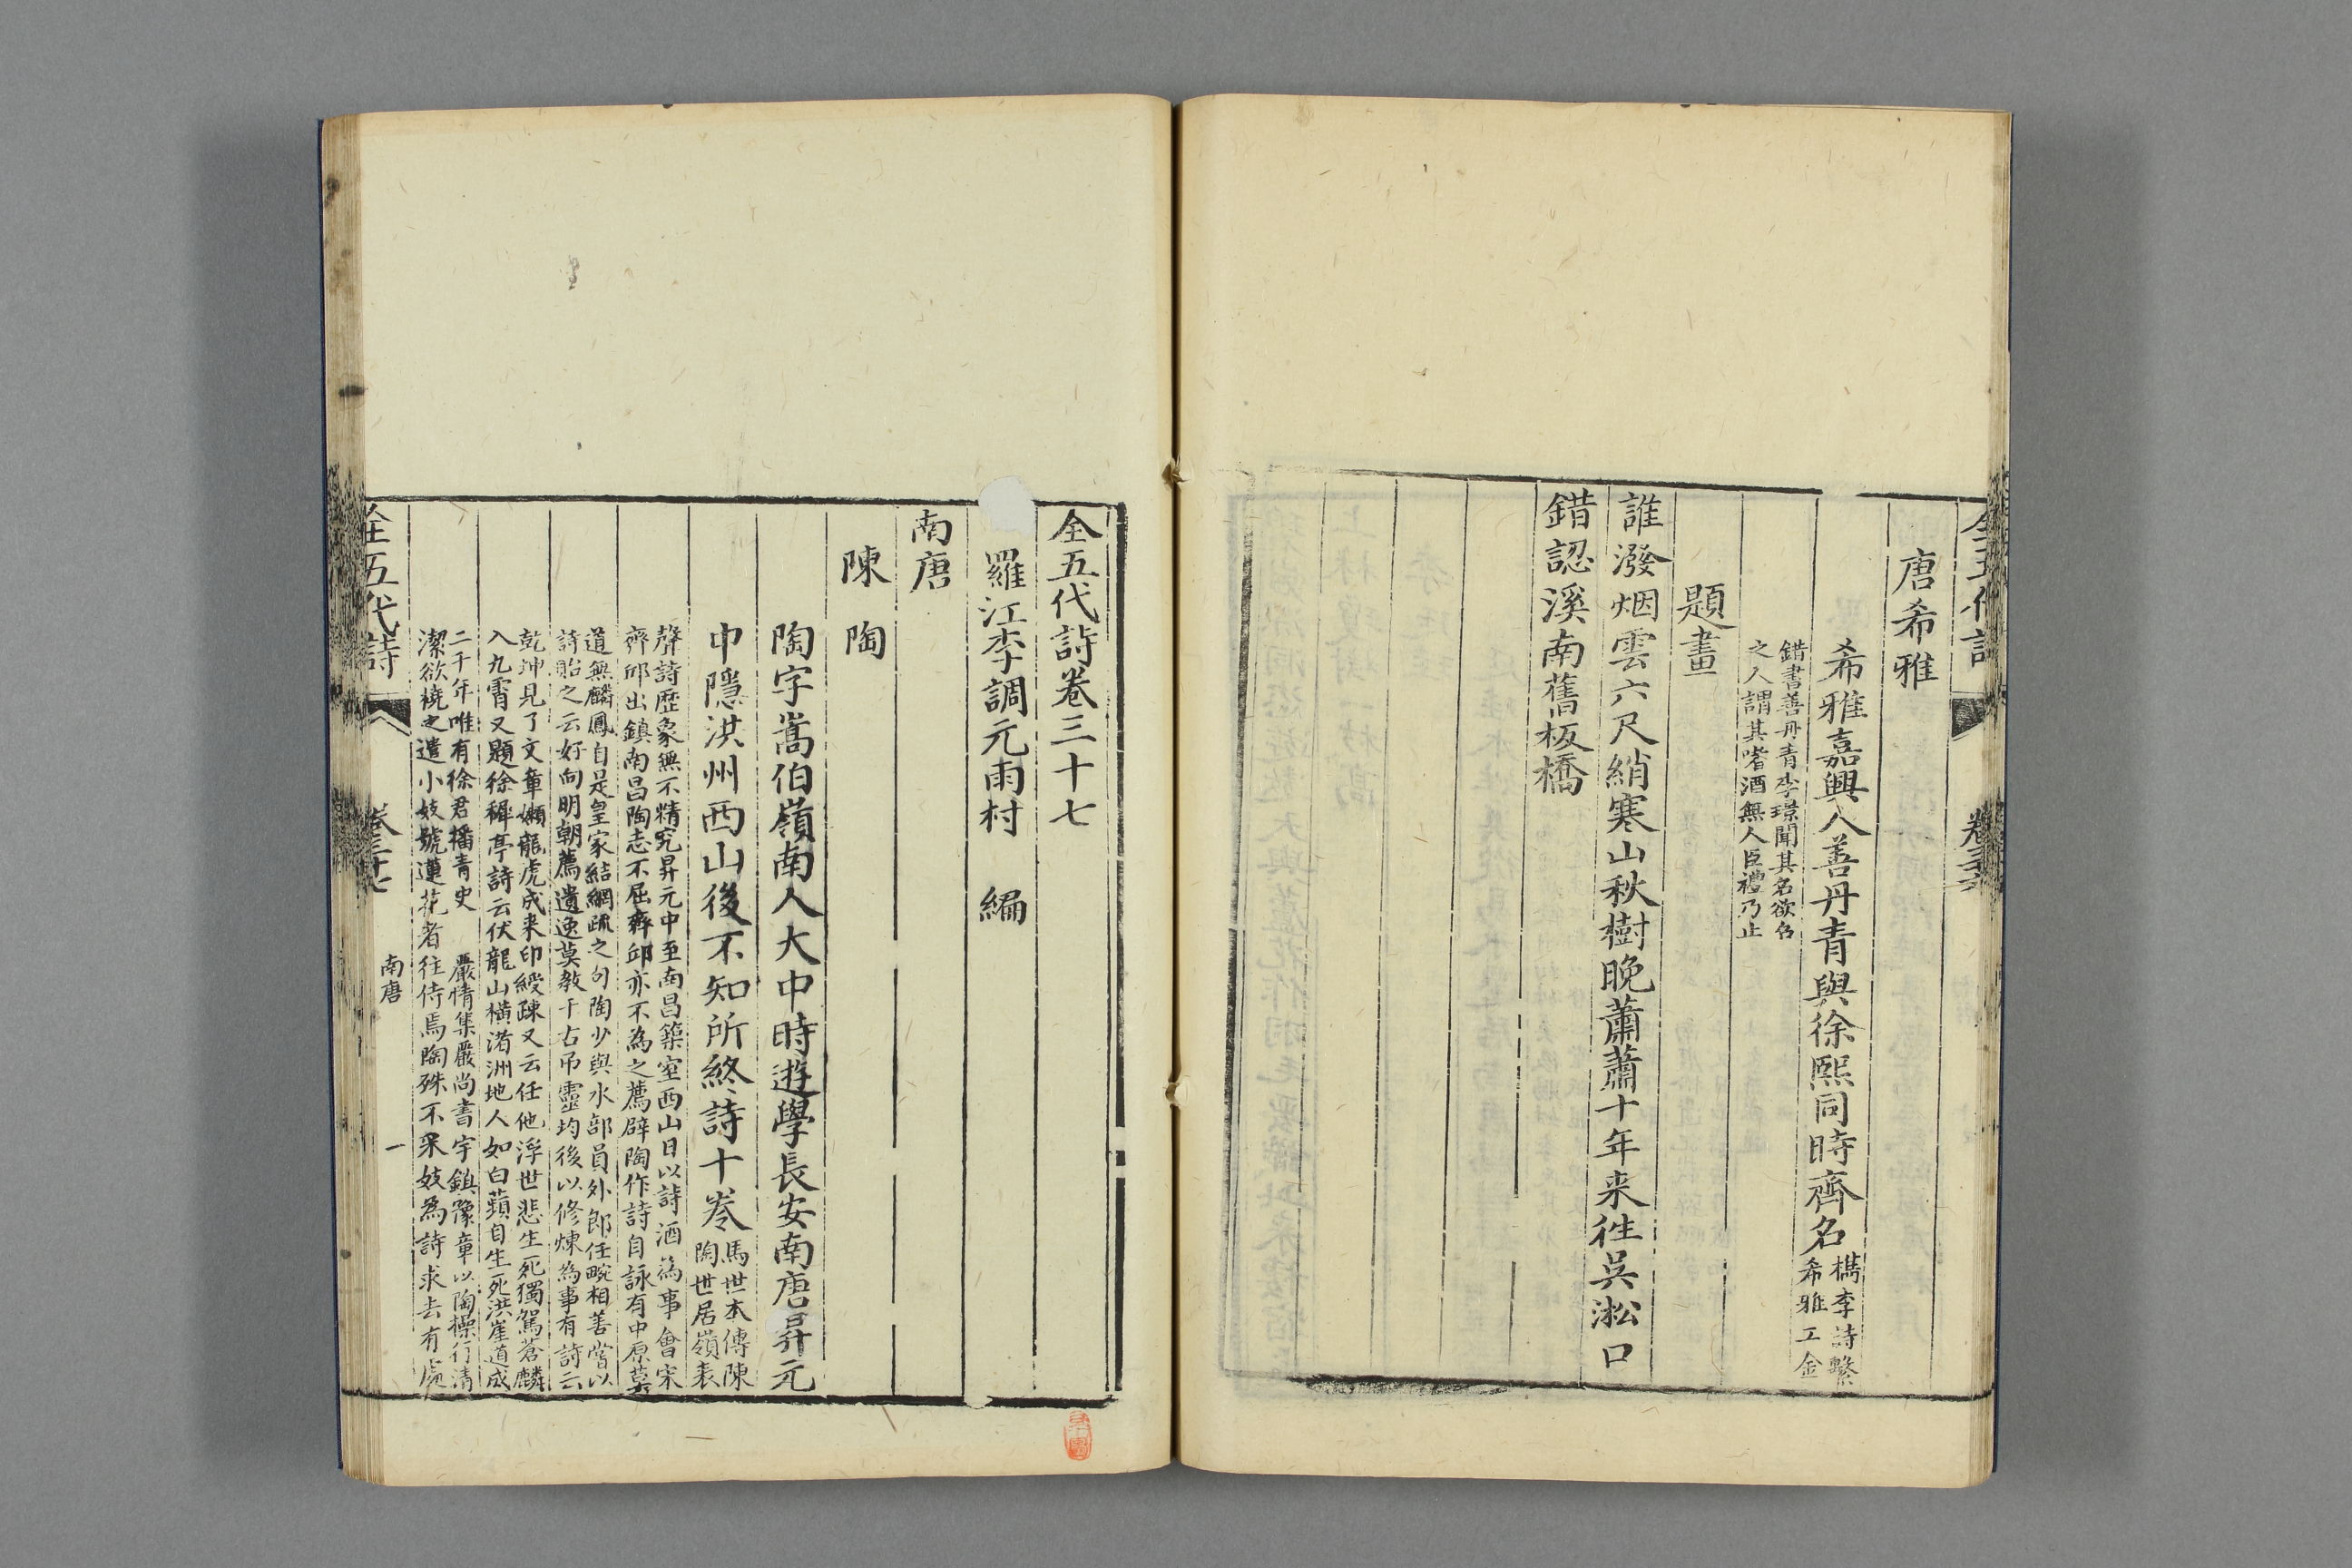 全五代詩
卷三十六
唐希雅
希雅嘉興人善丹青與徐熙同時齊名
檇李詩繫
希雅工金
錯書善丹青李璟聞其名欲召
之人謂其嗜酒無人臣禮乃止
題畫
誰潑烟雲六尺綃寒山秋樹晚蕭蕭十年来徃吳淞口
錯認溪南舊板橋
全五代詩卷三十七
羅江李調元雨村 編
南唐
陳陶
陶字嵩伯嶺南人大中時遊學長安南唐昇元
中隱洪州西山後不知所終詩十卷
馬世本傳陳
陶世居嶺表
聲詩歷象無不精究昇元中至南昌築室西山日以詩酒為事會宋
齊邱出鎮南昌陶志不屈齊邱亦不為之薦辟陶作詩自詠有中原莫
道無麟鳳自是皇家結網疏之句陶少與水部員外郎任畹相善嘗以
詩貽之云好向明朝薦遺逸莫教千古吊靈均後以修煉為事有詩云
乾坤見了文章嬾龍虎成来印綬疎又云任他浮世悲生死獨駕蒼麟
入九霄又題徐穉亭詩云伏龍山橫渚洲地人如白蘋自生死洪崖道成
二千年唯有徐君播青史 嚴情集嚴尚書宇鎮豫章以陶操行清
潔欲撓之遣小妓號蓮花者往侍焉陶殊不采妓為詩求去有處
全五代詩
卷三十七
南唐
一